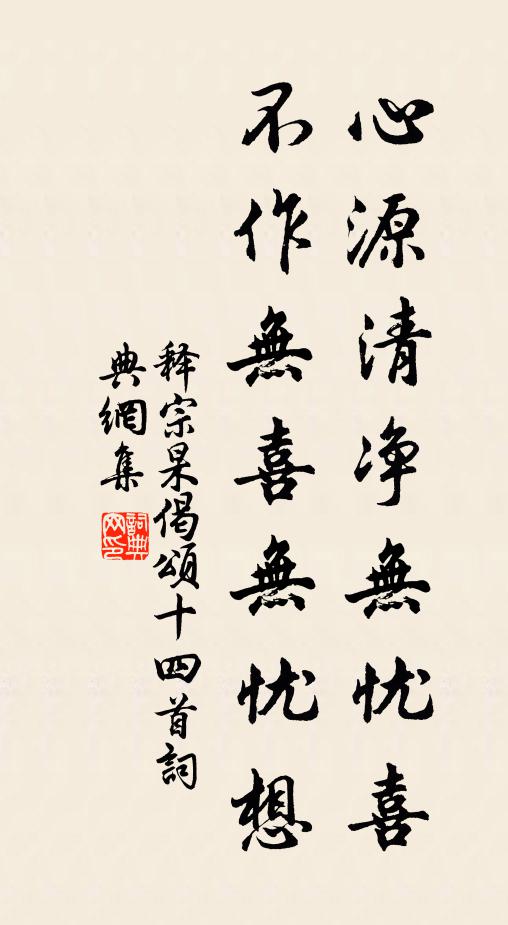 心源清净無忧喜
不作無喜無忧想
释宗杲偈頌十四首詞
典網集
詞典网印